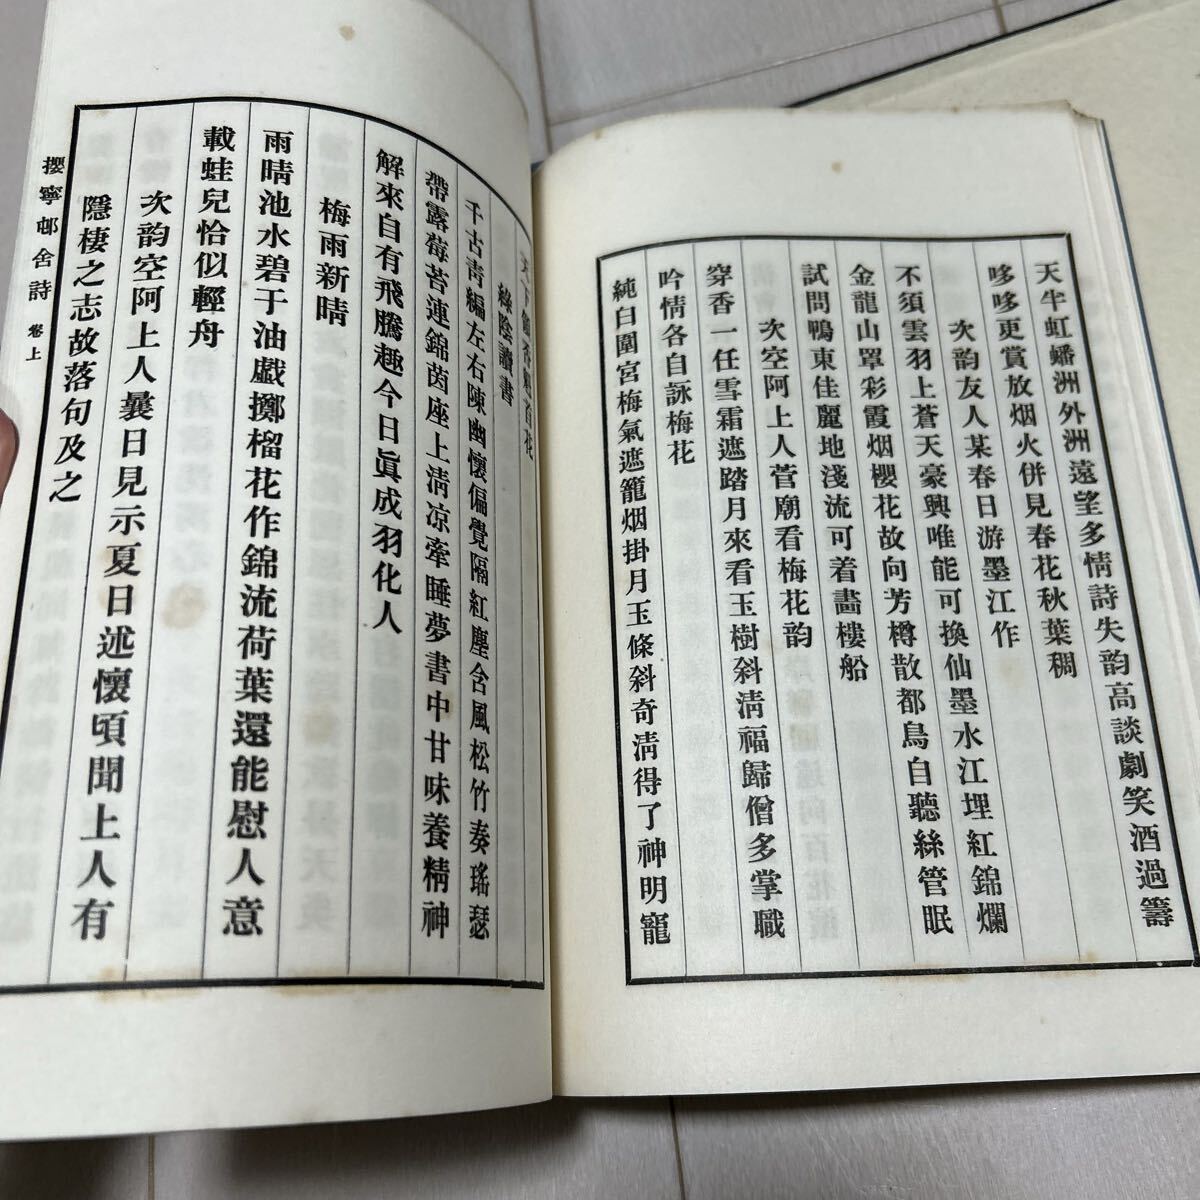 天半虹蟠洲外洲遠望多情詩失韵高談劇笑酒過籌
哆哆更賞放烟火併見春花秋葉稠
次韵友人某春日游墨江作
不須雲羽上蒼天豪興唯能可換仙墨水江埋紅錦爛
金龍山罩彩霞烟櫻花故向芳樽散都鳥自聽絲管眠
試問鴨東佳麗地淺流可着畵樓船
次空阿上人菅廟看梅花韵
穿香一任雪霜遮踏月來看玉樹斜淸福歸僧多掌職
吟情各自詠梅花
純白圍宮梅氣遮籠烟掛月玉條斜奇淸得了神明寵
百花
綠陰讀書
千古靑編左右陳幽懷偏覺隔紅塵含風松竹奏瑤瑟
帶露莓苔連錦茵座上淸凉牽睡夢書中甘味養精神
解來自有飛騰趣今日眞成羽化人
梅雨新晴
雨晴池水碧于油戱擲榴花作錦流荷葉還能慰人意
載蛙兒恰似輕舟
次韵空阿上人曩日見示夏日述懷頃聞上人有
隱棲之志故落句及之
攖寧邨舍詩 卷上